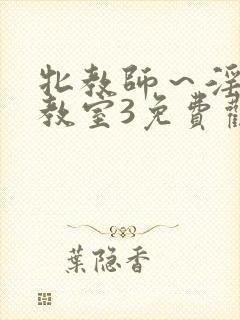 牝教師～淫
教室3免費
葉隐香